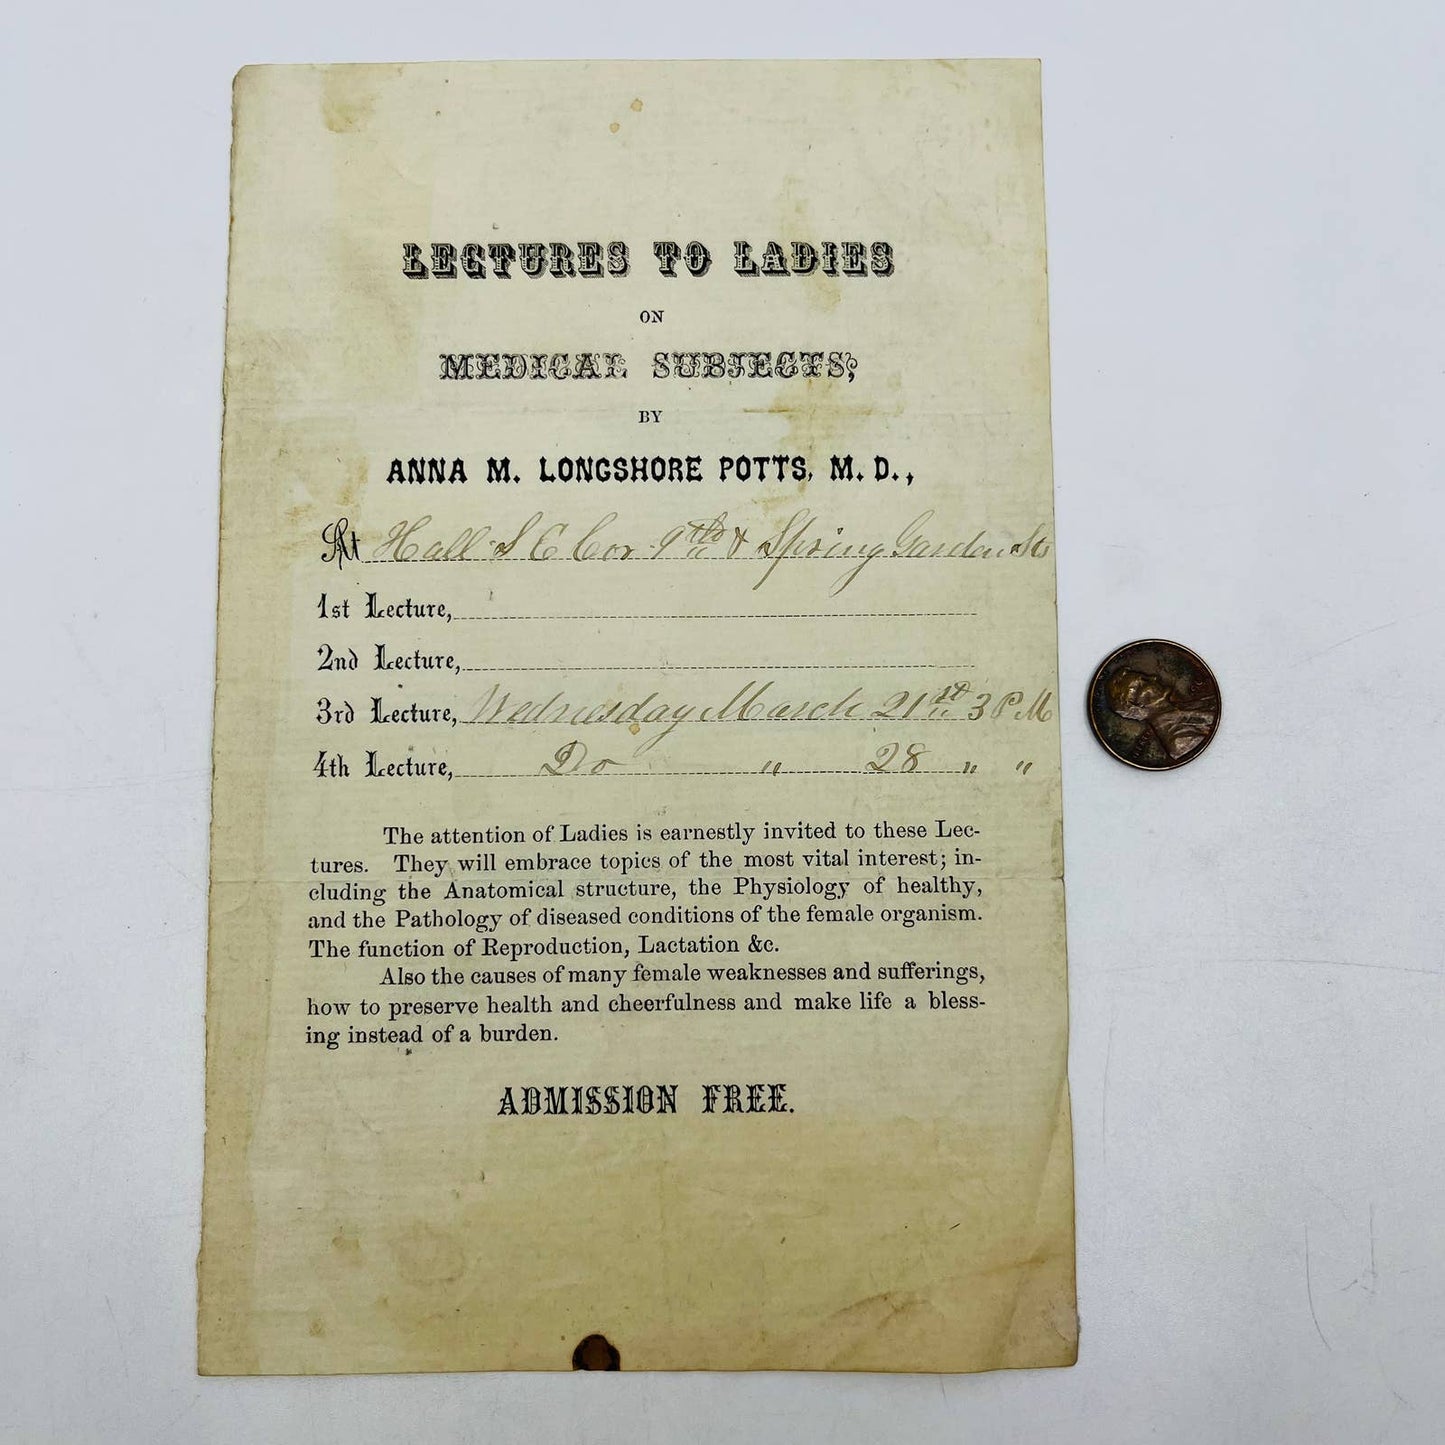 LECTURES TO LADIES
ON
MEDICAL SUBJECTS,
BY
ANNA M. LONGSHORE POTTS, M. D.,
At Hall S E Cor 9th & Spring Garden Sts
1st Lecture,
2nd Lecture,
3rd Lecture, Wednesday March 21st 3 P.M
4th Lecture, Do " 28 " "
The attention of Ladies is earnestly invited to these Lec-
tures. They will embrace topics of the most vital interest; in-
cluding the Anatomical structure, the Physiology of healthy,
and the Pathology of diseased conditions of the female organism.
The function of Reproduction, Lactation &c.
Also the causes of many female weaknesses and sufferings,
how to preserve health and cheerfulness and make life a bless-
ing instead of a burden.
ADMISSION FREE.